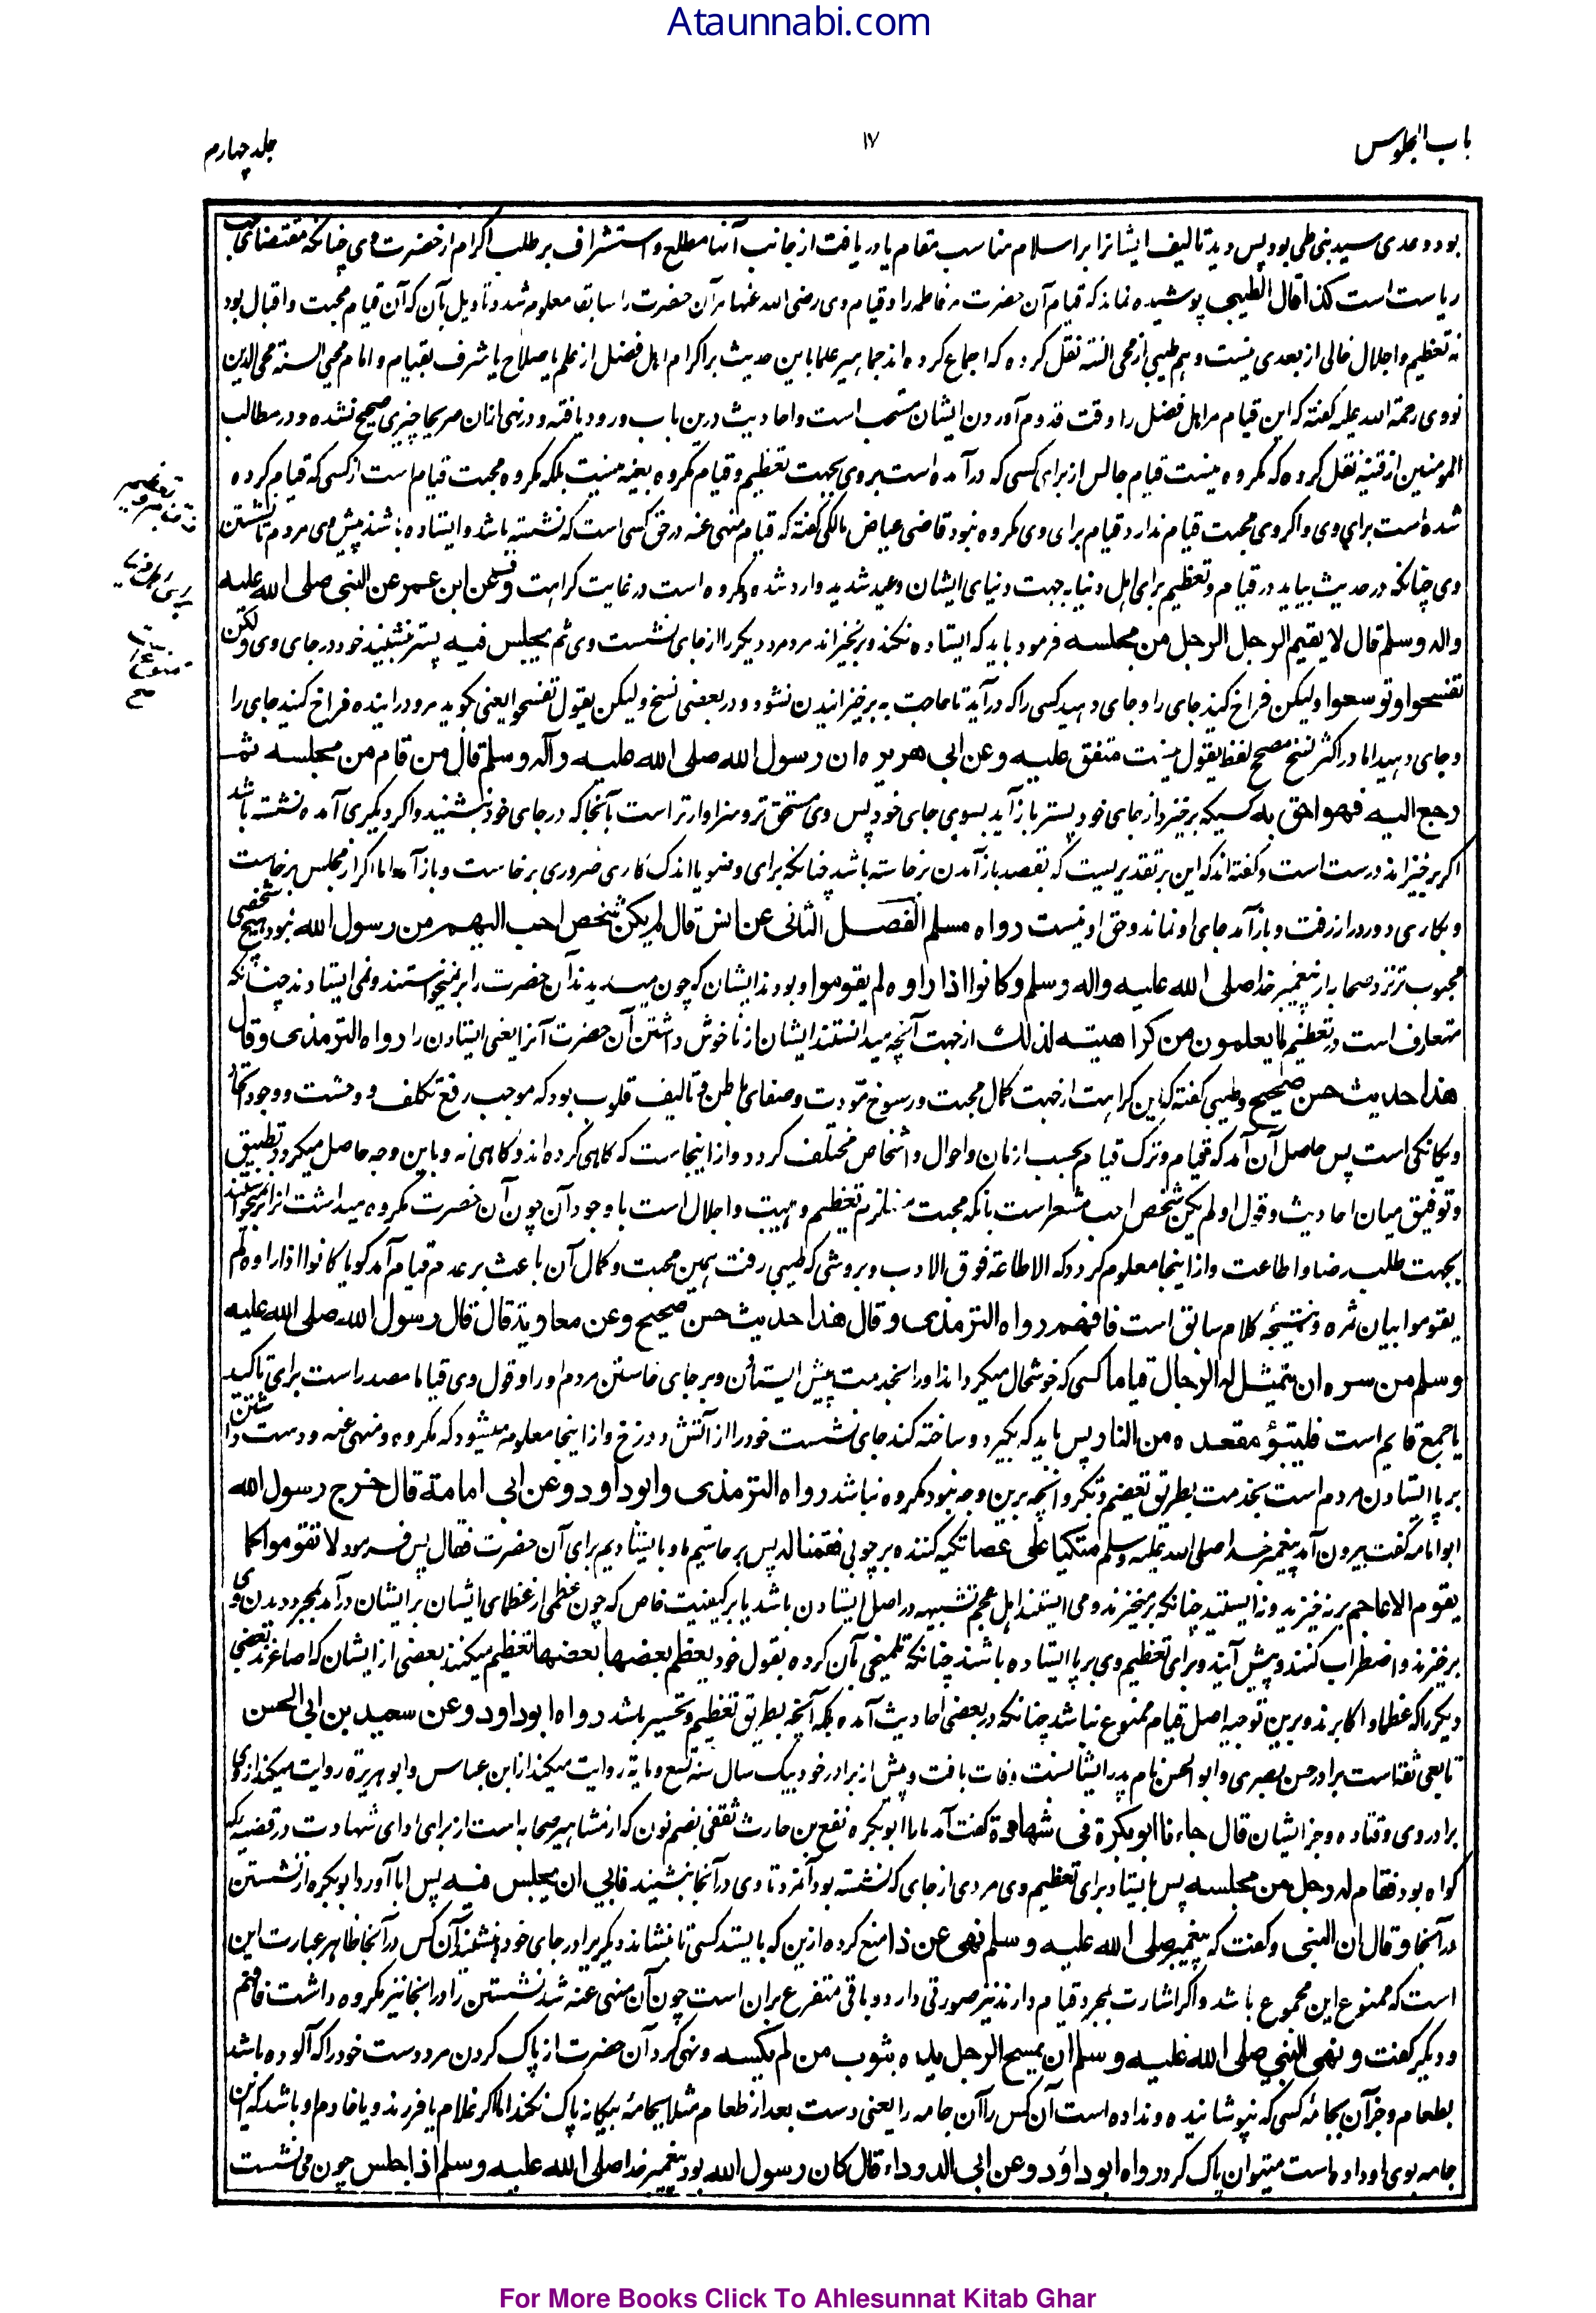 Ataunnabi.com
باب الجلوس
۱۷
جلد چهارم
بود و عدی سید بنی طی بود پس دید تالیف ایشانرا بر اسلام مناسب مقام یا دریافت از جانب آنها مطلع و استشراف بر طلب اکرام از حضرت وی چنانکه مقتضای حب
ریاست است کذا قال الطیبی پوشیده نماند که قیام آن حضرت مر فاطمه را و قیام وی رضی الله عنها مر آن حضرت را سابقا معلوم شد و تاویل بآن که آن قیام محبت و اقبال بود
نه تعظیم و اجلال خالی از بعدی نیست و هم طیبی از محی السنه نقل کرده که اجماع کرده اند جماهیر علما باین حدیث بر اکرام اهل فضل از علم یا صلاح یا شرف بقیام و امام محیی السنة محی الدین
نووی رحمة الله علیه گفته که این قیام مر اهل فضل را وقت قدوم آوردن ایشان مستحب است و احادیث درین باب ورود یافته و در نهی ازان صریحا چیزی صحیح نشده و در مطالب
المومنین از قنیه نقل کرده که مکروه نیست قیام جالس از برای کسی که درآمده است بر وی بجهت تعظیم و قیام مکروه بعینه نیست بلکه مکروه محبت قیام است از کسی که قیام کرده
شده است برای وی و اگر وی محبت قیام ندارد قیام برای وی مکروه نبود قاضی عیاض مالکی گفته که قیام منهی عنه در حق کسی است که نشسته باشد و ایستاده باشند پیش وی مردم تا نشستن
وی چنانکه در حدیث بیاید در قیام و تعظیم برای اهل دنیا به جهت دنیای ایشان وعید شدید وارد شده و مکروه است در غایت کراهت وعن ابن عمر عن النبی صلی الله علیه
واله وسلم قال لا یقیم الرجل الرجل من مجلسه فرمود باید که ایستاده نکند و برنخیزاند مرد مرد دیگر را از جای نشست وی ثم یجلس فیه پستر نشیند خود در جای وی ولکن
تفسحوا وتوسعوا ولیکن فراخ کنید جای را و جای دهید کسی را که درآید تا حاجت به برخیزانیدن نشود و در بعضی نسخ ولیکن یقول تفسحوا یعنی بگوید مرد درآینده فراخ کنید جای را
و جای دهید اما در اکثر نسخ مصحح لفظ یقول نیست متفق علیه وعن ابی هریره ان رسول الله صلی الله علیه وآله وسلم قال من قام من مجلسه ثم
رجع الیه فهو احق به کسیکه برخیزد از جای خود پستر باز آید بسوی جای خود پس وی مستحق تر و سزاوارتر است بآنجا که در جای خود بنشیند و اگر دیگری آمده نشسته باشد
اگر برخیزاند درست است و گفته اند که این بر تقدیریست که بقصد باز آمدن برخاسته باشد چنانکه برای وضو یا اندک کاری ضروری برخاست و باز آمد اما اگر از مجلس برخاست
و بکاری دور دراز رفت و باز آمد جای او نماند و حق او نیست رواه مسلم الفصل الثانی عن انس قال لم یکن شخص احب الیهم من رسول الله نبود هیچ شخصی
محبوب تر نزد صحابه از پیغمبر خدا صلی الله علیه واله وسلم وکانوا اذا راوه لم یقوموا و بودند ایشان که چون میدیدند آن حضرت را بر نمیخواستند و نمی ایستادند چنانکه
متعارف است در تعظیم لما یعلمون من کراهیته لذلک از جهت آنچه میدانستند ایشان از ناخوش داشتن آن حضرت آنرا یعنی ایستادن را رواه الترمذی وقال
هذا حدیث حسن صحیح و طیبی گفته که این کراهت از جهت کمال محبت و رسوخ مودت و صفای باطن و تالیف قلوب بود که موجب رفع تکلف و وحشت و وجود اتحاد
و یگانگی است پس حاصل آن آمد که قیام و ترک قیام بحسب ازمان و احوال و اشخاص مختلف گردد و از اینجاست که گاهی کرده اند و گاهی نه و باین وجه حاصل میگردد تطبیق
و توفیق میان احادیث و قول او لم یکن شخص احب مشعر است بآنکه محبت مستلزم تعظیم و هیبت و اجلال است با وجود آن چون آن حضرت مکروه میداشت آنرا برنمیخواستند
بجهت طلب رضا و اطاعت و از اینجا معلوم گردد که الاطاعة فوق الادب و بروشی که طیبی رفت همین محبت و کمال آن باعث بر عدم قیام آمد گویا کانوا اذا راوه لم
یقوموا بیان ثمره و نتیجه کلام سابق است فافهم رواه الترمذی وقال هذا حدیث حسن صحیح وعن معاویة قال قال رسول الله صلی الله علیه
وسلم من سره ان یتمثل له الرجال قیاما کسی که خوشحال میگرداند او را بخدمت پیش ایستادن و بر جای خاستن مردم او را و قول وی قیاما مصدر است برای تاکید
یا جمع قایم است فلیتبؤ مقعده من النار پس باید که بگیرد و ساخته کند جای نشست خود را از آتش دوزخ و از اینجا معلوم میشود که مکروه و منهی عنه دوست داشتن
بر پا ایستادن مردم است بخدمت بطریق تعظیم و تکبر و آنچه برین وجه نبود مکروه نباشد رواه الترمذی وابو داود وعن ابی امامة قال خرج رسول الله
ابو امامه گفت بیرون آمد پیغمبر خدا صلی الله علیه وسلم متکیا علی عصا تکیه کننده بر چوبی فقمنا له پس برخاستیم ما و بایستادیم برای آن حضرت فقال پس فرمود لا تقوموا کما
یقوم الاعاجم برنخیزید و نه ایستید چنانکه برمیخیزند و می ایستند اهل عجم تشبیه در اصل ایستادن باشد یا بر کیفیت خاص که چون عظمی از عظمای ایشان بر ایشان درآمد بمجرد دیدن وی
برخیزند و اضطراب کنند و پیش آیند و برای تعظیم وی بر پا ایستاده باشند چنانکه تلمیحی بآن کرده بقول خود یعظم بعضها بعضها تعظیم میکند بعضی از ایشان که اصاغرند بعضی
دیگر را که عظما و اکابرند و برین توجیه اصل قیام ممنوع نباشد چنانکه در بعضی احادیث آمده بلکه آنچه بطریق تعظیم و تجبر باشد رواه ابو داود وعن سعید بن ابی الحسن
تابعی ثقه است برادر حسن بصری و ابو الحسن نام پدر ایشانست وفات یافت پیش از برادر خود بیک سال سنه تسع و مایة روایت میکند از ابن عباس و ابو هریره روایت میکند از وی
برادر وی و قتاده و جز ایشان قال جاءنا ابو بکرة فی شهادة گفت آمد ما را ابو بکره نفیع بن حارث ثقفی بضم نون که از مشاهیر صحابه است از برای ادای شهادت در قضیه که
گواه بود فقام له رجل من مجلسه پس بایستاد برای تعظیم وی مردی از جای که نشسته بود آنمرد تا وی در آنجا بنشیند فابی ان یجلس فیه پس ابا آورد ابو بکره از نشستن
در آنجا وقال ان النبی و گفت که پیغمبر صلی الله علیه وسلم نهی عن ذا منع کرده ازین که بایستد کسی تا بنشاند دیگریرا در جای خود و بنشیند آن کس در آنجا ظاهر عبارت این
است که ممنوع این مجموع باشد و اگر اشارت بمجرد قیام دارند نیز صورتی دارد و باقی متفرع بران است چون آن منهی عنه شد نشستن را در اینجا نیز مکروه داشت فافهم
و دیگر گفت ونهی النبی صلی الله علیه وسلم ان یمسح الرجل یده بثوب من لم یکسه و نهی کرد آن حضرت از پاک کردن مرد دست خود را که آلوده باشد
بطعام و جز آن بجامه کسی که نپوشانیده و نداده است آن کس را آن جامه را یعنی دست بعد از طعام مثلا بجامه بیگانه پاک نکند اما اگر غلام یا فرزند و یا خادم او باشد که این
جامه بوی او داده است میتوان پاک کرد رواه ابو داؤد وعن ابی الدرداء قال کان رسول الله بود پیغمبر خدا صلی الله علیه وسلم اذا جلس چون می نشست
For More Books Click To Ahlesunnat Kitab Ghar